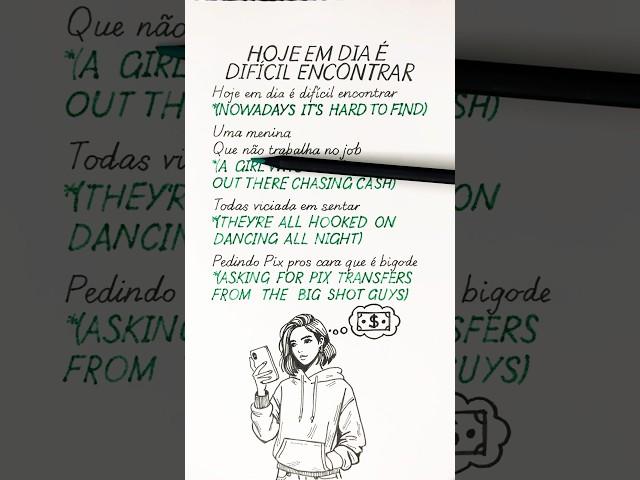 HOJE EM DIA É
DIFÍCIL ENCONTRAR
Hoje em dia é difícil encontrar
*(NOWADAYS IT'S HARD TO FIND)
Uma menina
Que não trabalha no job
*(A GIRL
OUT THERE CHASING CASH)
Todas viciada em sentar
*(THEY'RE ALL HOOKED ON
DANCING ALL NIGHT)
Pedindo Pix pros cara que é bigode
*(ASKING FOR PIX TRANSFERS
FROM THE BIG SHOT GUYS)
$